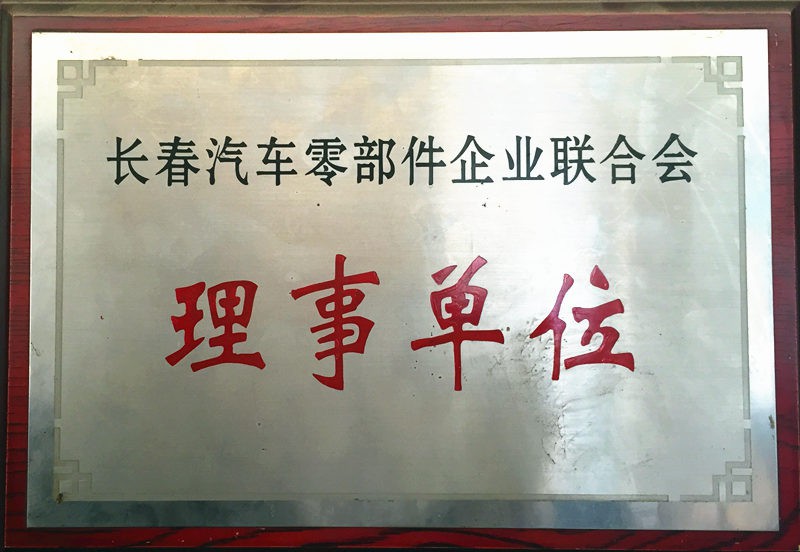 长春汽车零部件企业联合会
理事单位